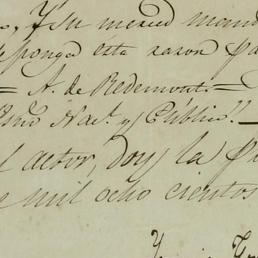 Y su merced mand
sponga esta razon pa
= A. de Redemont. =
Esno Nacl. y Públio
l actor, doy la p
e mil ocho cientos